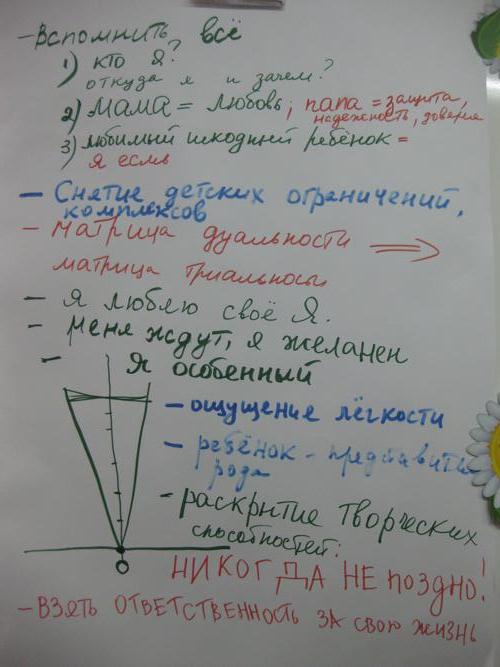 - Вспомнить всё
1) кто я?
откуда я и зачем?
2) мама = любовь; папа = защита,
надежность, доверие
3) любимый исходный ребёнок =
я есмь
- Снятие детских ограничений,
комплексов
- Матрица дуальности ⇒
матрица триальносы
- Я люблю своё Я.
- Меня ждут, я желанен
- Я особенный
- ощущение лёгкости
- ребёнок - представитель
рода
- раскрытие творческих
способностей:
0
НИКОГДА НЕ поздно!
- Взять ответственность за свою жизнь